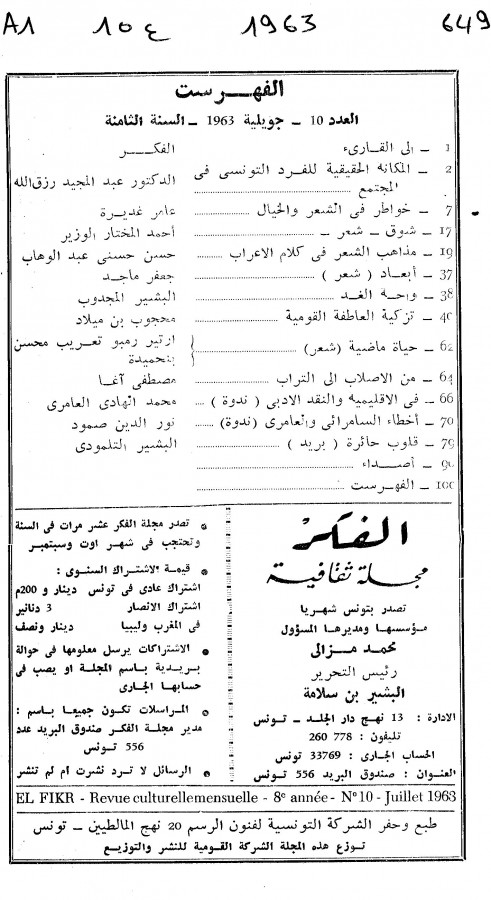 A1 10ع 1963 649
الفهرست
العدد 10 ـ جويلية 1963 ـ السنة الثامنة
1 ـ الى القارىء الفكر
2 ـ المكانة الحقيقية للفرد التونسى فى
المجتمع الدكتور عبد المجيد رزق الله
7 ـ خواطر فى الشعر والخيال عامر غديرة
17 ـ شوق ـ شعر ـ أحمد المختار الوزير
19 ـ مذاهب الشعر فى كلام الاعراب حسن حسنى عبد الوهاب
37 ـ أبعاد ( شعر ) جعفر ماجد
38 ـ واحة الغد البشير المجدوب
40 ـ تزكية العاطفة القومية محجوب بن ميلاد
62 ـ حياة ماضية (شعر) ارتير رمبو تعريب محسن
بنحميدة
64 ـ من الاصلاب الى التراب مصطفى آغا
66 ـ فى الاقليمية والنقد الادبى ( ندوة ) محمد الهادى العامرى
70 ـ أخطاء السامرائى والعامرى (ندوة) نور الدين صمود
79 ـ قلوب حائرة ( بريد ) البشير التلمودى
90 ـ أصداء
100 ـ الفهرست
الفكر
مجلة ثقافية
تصدر بتونس شهريا
مؤسسها ومديرها المسؤول
محمد مزالى
رئيس التحرير
البشير بن سلامة
الادارة : 13 نهج دار الجلد ـ تونس
تليفون : 778 260
الحساب الجارى : 33769 تونس
العنوان : صندوق البريد 556 تونس
• تصدر مجلة الفكر عشر مرات فى السنة
وتحتجب فى شهر اوت وسبتمبر
• قيمة الاشتراك السنوى :
اشتراك عادى فى تونس دينار و 200م
اشتراك الانصار 3 دنانير
فى المغرب وليبيا دينار ونصف
• الاشتراكات يرسل معلومها فى حوالة
بريدية باسم المجلة او يصب فى
حسابها الجارى
• المراسلات تكون جميعا باسم :
مدير مجلة الفكر صندوق البريد عدد
556 تونس
• الرسائل لا ترد نشرت ام لم تنشر
EL FIKR - Revue culturellemensuelle - 8e année - N° 10 - Juillet 1963
طبع وحفر الشركة التونسية لفنون الرسم 20 نهج المالطيين ـ تونس
توزع هذه المجلة الشركة القومية للنشر والتوزيع